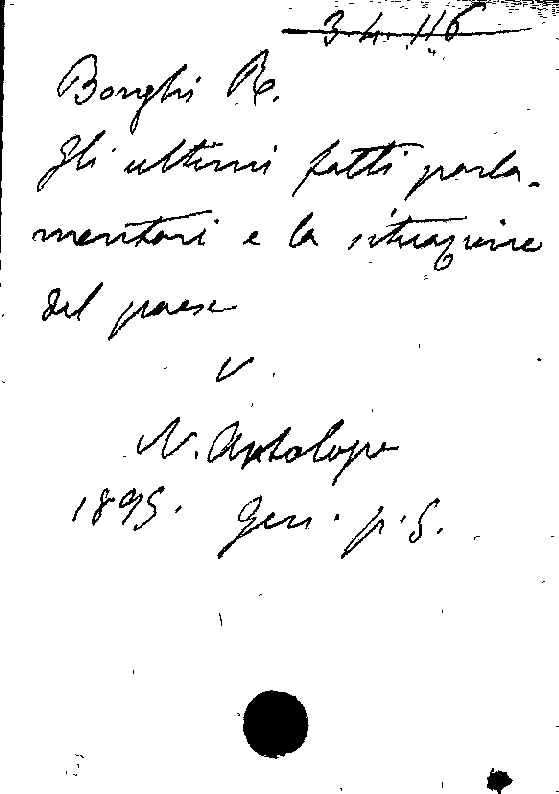 3 4. 116
Bonghi R.
Gli ultimi fatti parla-
mentari e la situazione
del paese
V.
N. Antologia
1895. Gen. p. 5.